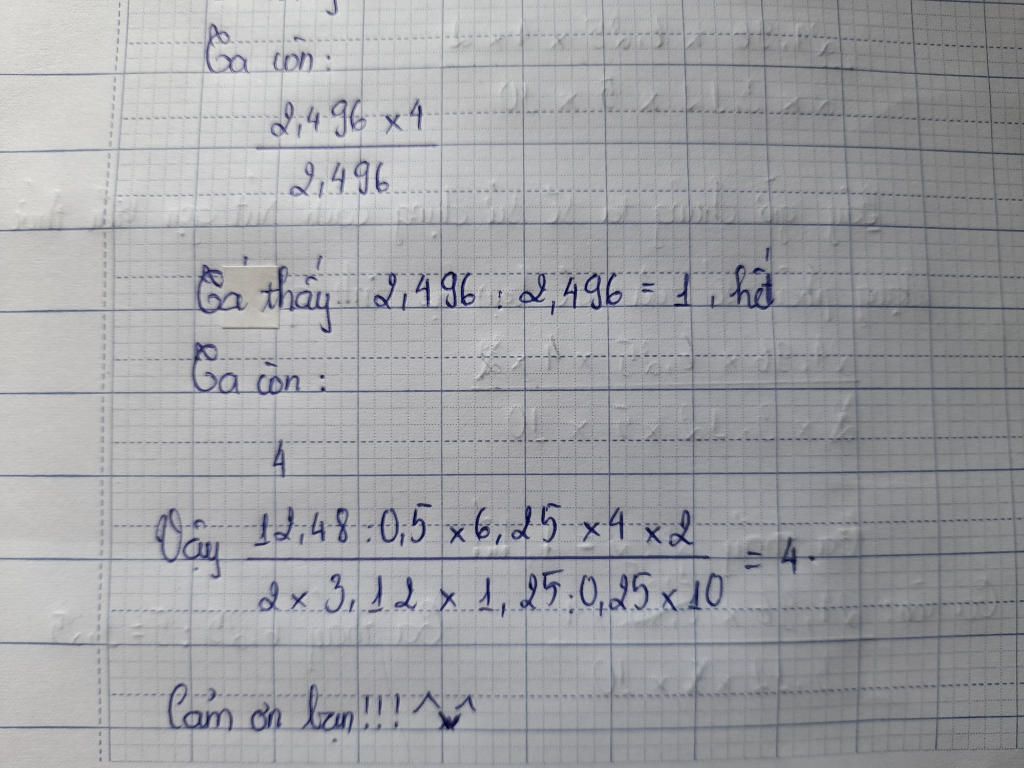 Ta còn:
2,496 x 4
2,496
Tá thấy 2,496 : 2,496 = 1, hết
Ta còn:
4
Vậy 12,48 : 0,5 x 6,25 x 4 x 2 = 4.
2 x 3,12 x 1,25 : 0,25 x 10
Cảm ơn bạn!!! ^v^